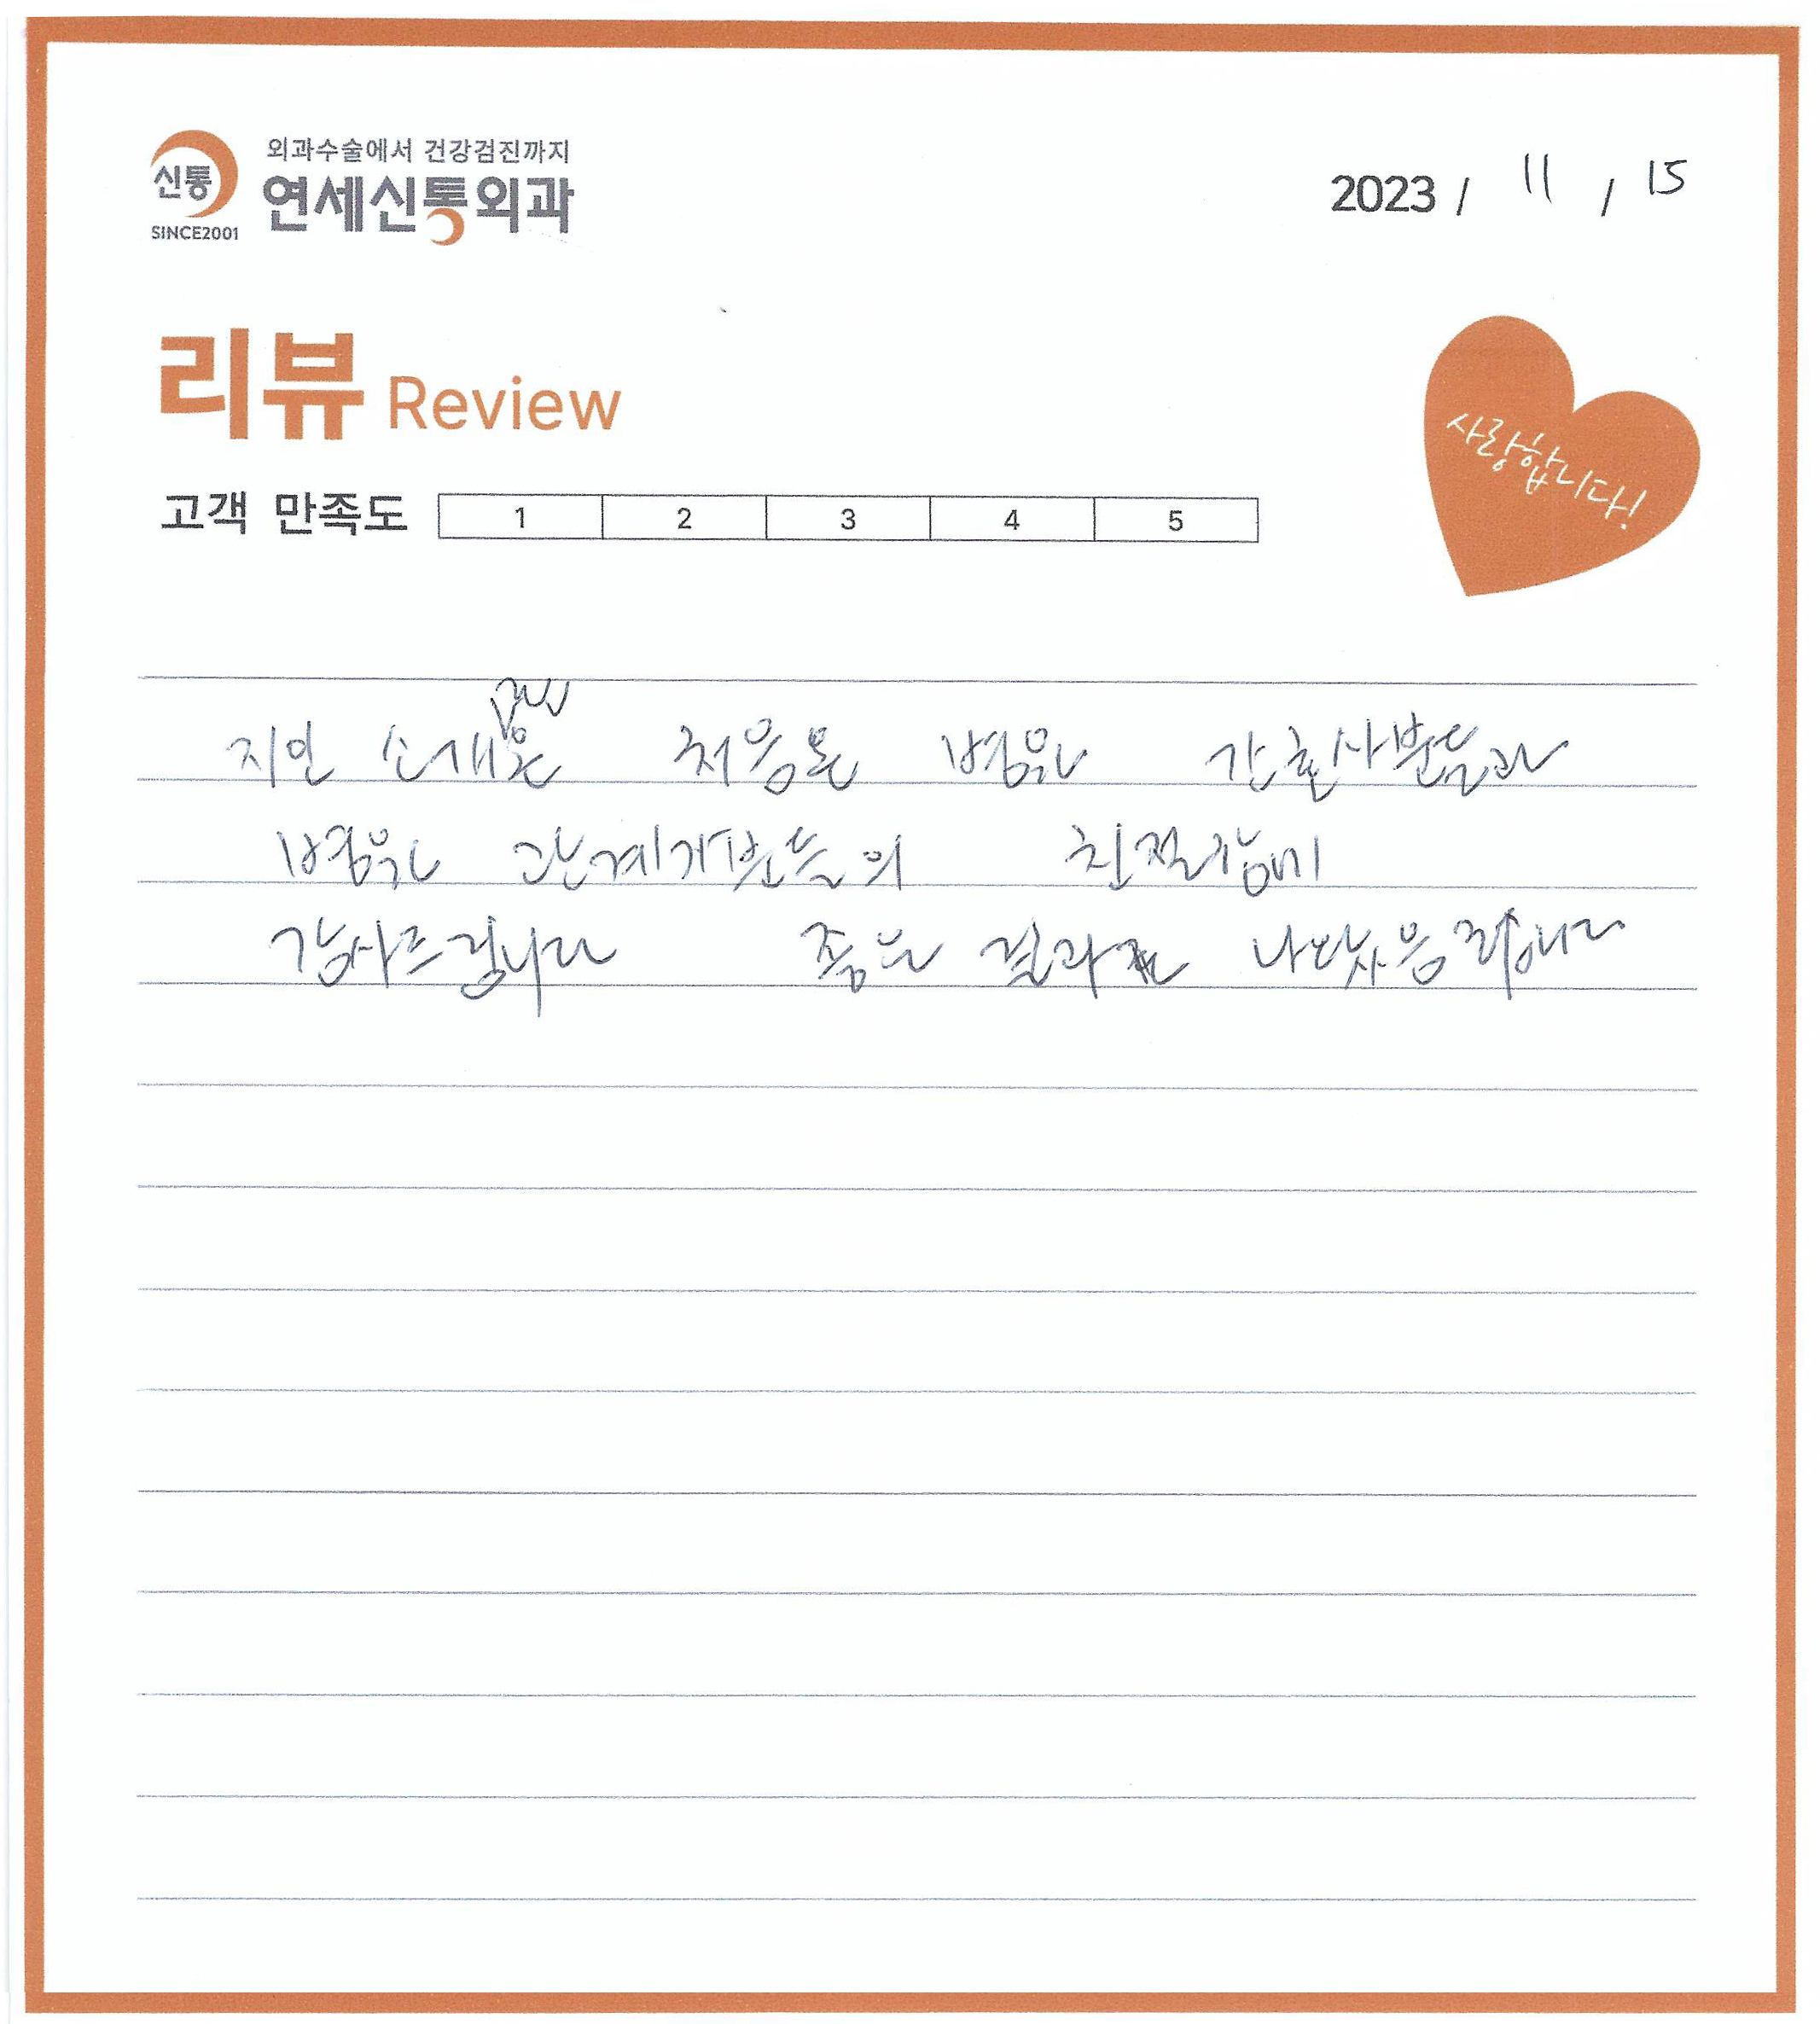 외과수술에서 건강검진까지
신통
연세신통외과
SINCE2001
2023 / 11 / 15
리뷰 Review
사랑합니다!
고객 만족도 1 2 3 4 5
지인 소개 처음온 병원 간호사분들과
병원 관계자분들의 친절함에
감사드립니다 좋은 결과 나왔음 합니다